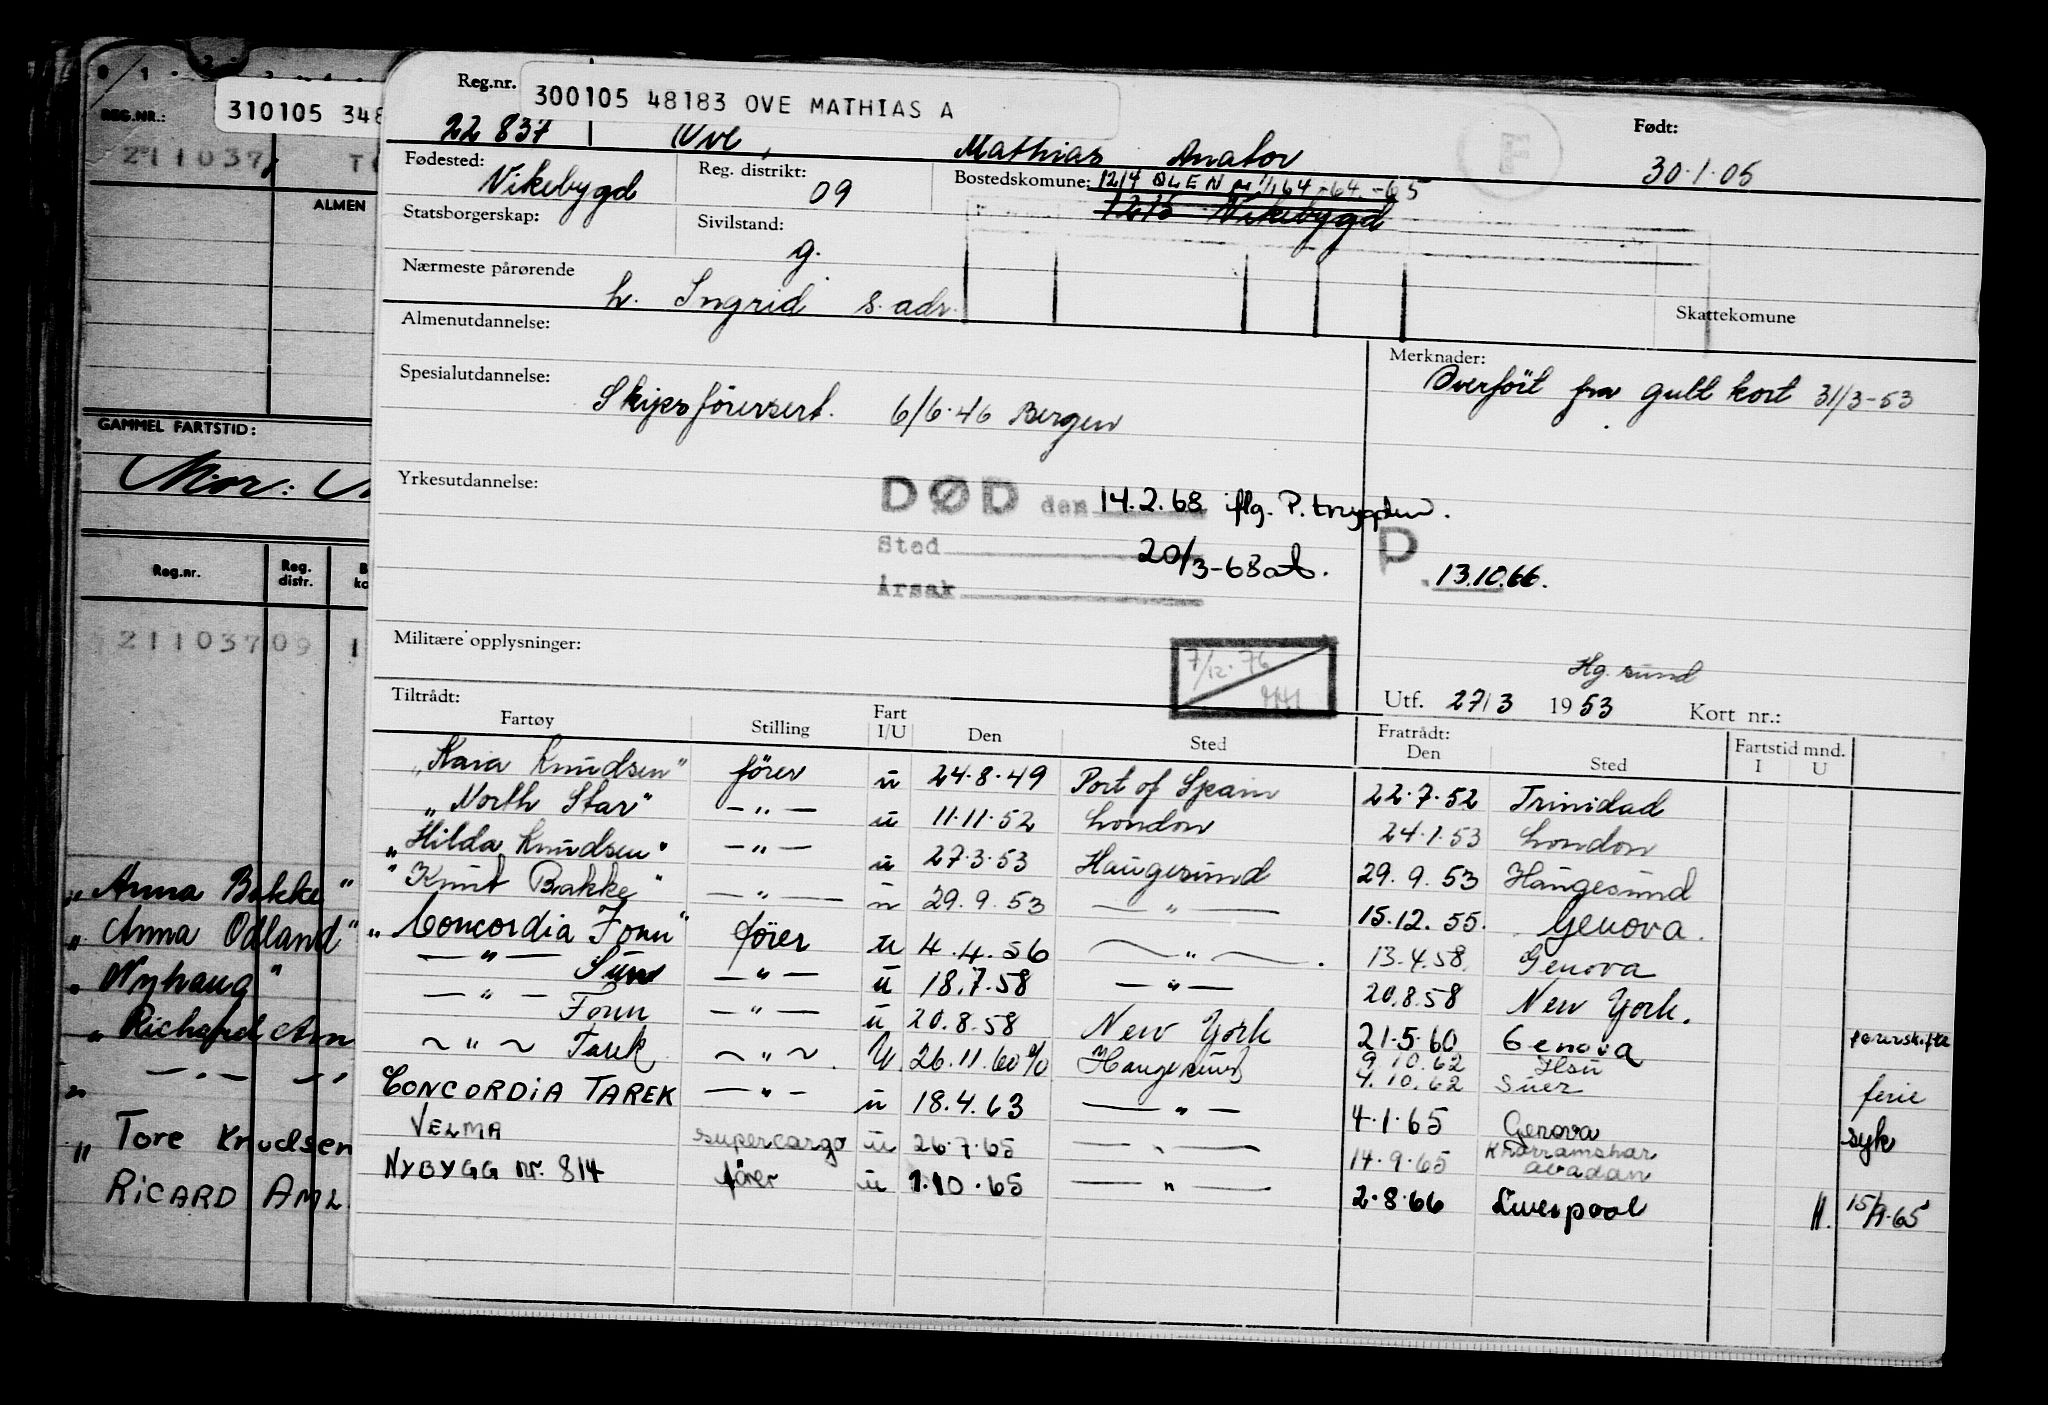 REG.NR.:
310105 348
211037
ALMEN
GAMMEL FARTSTID:
Mor:
Reg.nr.
Reg. distr.
21103709
„Anna Bakke"
„Anna Odland"
„Nyhaug"
„Richard
„Tore Knudsen
RICARD AML
Reg.nr.
300105 48183 OVE MATHIAS A
Født:
22 837 Ove, Mathias Anator 30.1.05
Fødested: Vikebygd
Reg. distrikt: 09
Bostedskomune: 1214 ØLEN pr 1/1 64 -64.-65
1215 Vikebygd
Statsborgerskap:
Sivilstand: g.
Nærmeste pårørende
h. Ingrid s. adr.
Skattekomune
Almenutdannelse:
Merknader:
Overført fra gult kort 31/3-53
Spesialutdannelse:
Skipsførersert. 6/6.46 Bergen
Yrkesutdannelse:
DØD den 14.2.68 iflg. P. trygden.
Sted 20/3-68
Årsak
P. 13.10.66.
Militære opplysninger:
7/12.76
Hg.sund
Utf. 27/3 1953 Kort nr.:
Tiltrådt:
Fartøy Stilling Fart I/U Den Sted
Fratrådt: Den Sted Fartstid mnd. I U
„Kaia Knudsen" fører u 24.8.49 Port of Spain 22.7.52 Trinidad
„North Star" —"— u 11.11.52 London 24.1.53 London
„Hilda Knudsen" —"— u 27.3.53 Haugesund 29.9.53 Haugesund
"Knut Bakke" —"— u 29.9.53 —"— 15.12.55. Genova.
„Concordia Fonn" fører u 4.4.56 —"—. 13.4.58. Genova
—"— Sun —"— u 18.7.58 —"— 20.8.58 New York.
—"— Fonn —"— u 20.8.58 New York 21.5.60 Genova
~"~ Tarek ~"~ u 26.11.60 Haugesund 9.10.62
4.10.62 Suez ferie
CONCORDIA TAREK —"— u 18.4.63 —"— 4.1.65 Genova syk
VELMA supercargo u 26.7.65 —"— 14.9.65 Khorramshar
abadan
NYBYGG nr. 814 fører u 1.10.65 —"— 2.8.66 Liverpool 11. 15/9.65